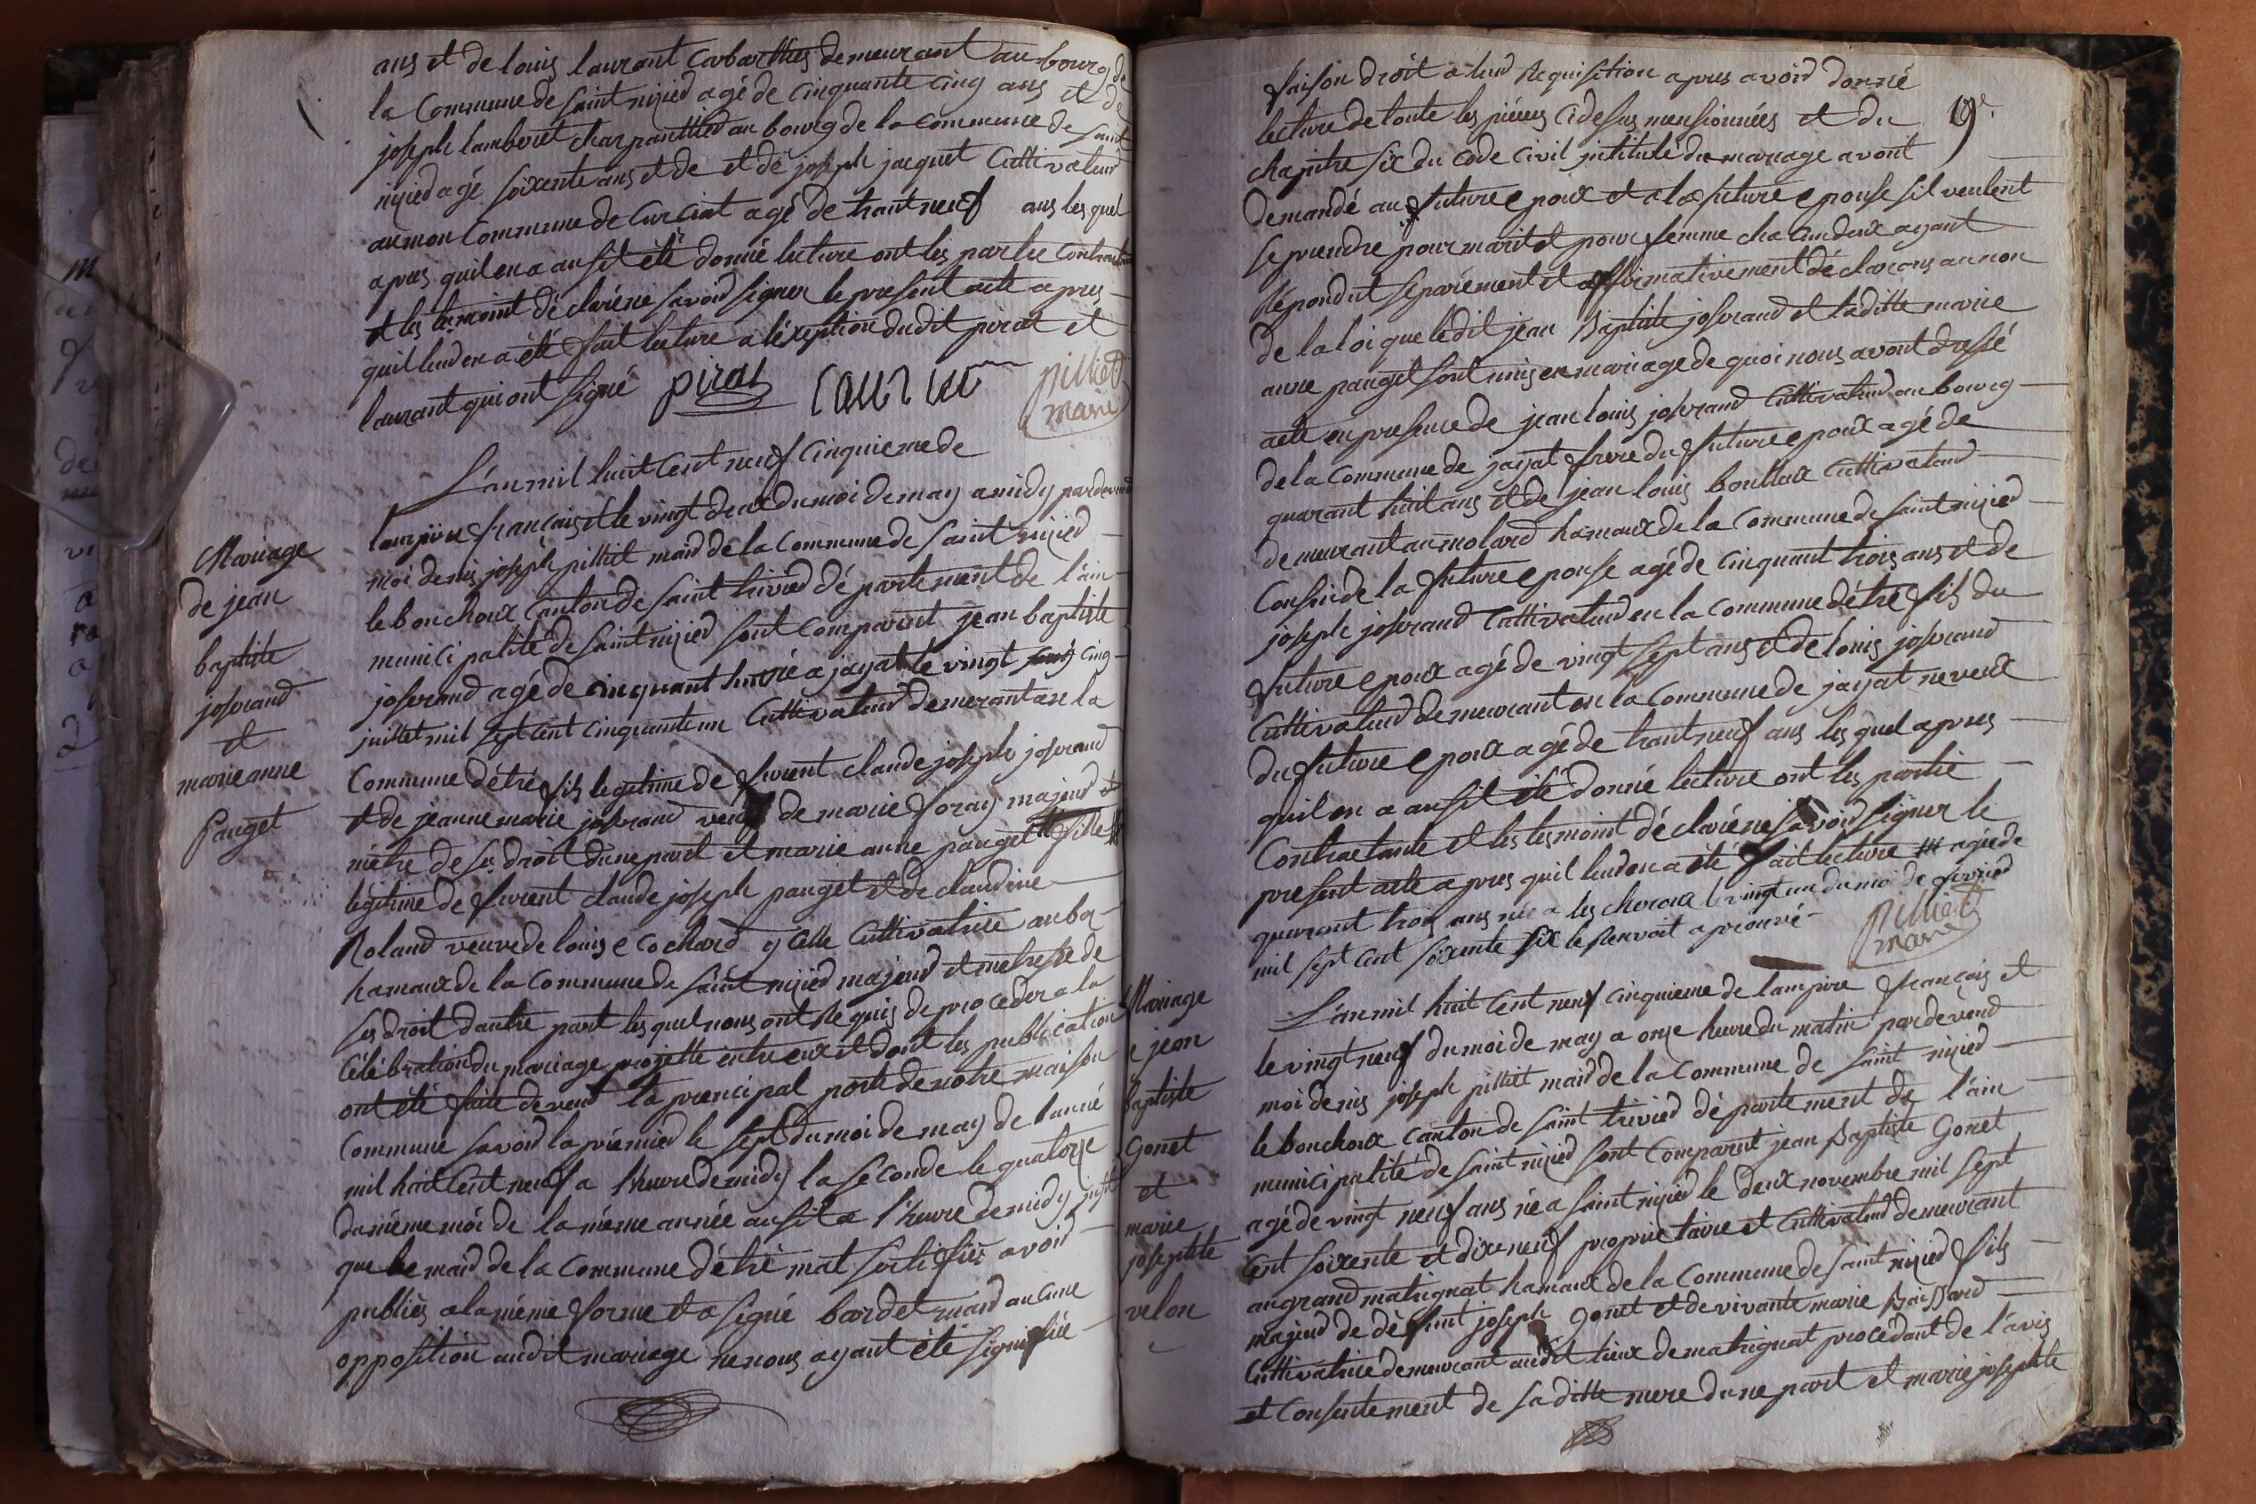 ans et de louis laurant Corbarthies demeurant au bourg de
la Commune de saint nizied agé de cinquante cinq ans et de
joseph lamberet charpanthied au bourg de la commune de saint
nizied agé soixente ans et de et de joseph jacquet Cultivateud
au mon Commune de Curciat agé de trant neuf ans les quel
apres quil en a ausit été donné lecture ont les partie Contractante
et les temoint déclaré ne savoid signer le present acte apres
quil leuden a été fait lecture a l'éxeption dudit pirat et
laurant qui ont signé pirat laurant pilliet
maire
L'an mil huit Cent neuf cinquieme de
lampire français et le vingt deux du moi de may a midy pardevend
moi denis joseph pilliet maid de la Commune de Saint nizied
le bonchoux Canton de saint trivied département de l'ain
municipalité de saint nizied sont comparent jean baptiste
josserand agé de cinquant huit née a jayat le vingt cinq
juillet mil sept cent cinquante un Cultivateud demeurant a la
Commune d'étré fils legitime de furent claude joseph josserand
et de jeanne marie josserand veuf de marie foray majeud et
métre de ses droit d'une part et marie anne pauget fille
légitime de furent claude joseph pauget et de claudine
Roland veuve de louis Cochard y Celle Cultivatrice au
hamaux de la Commune de saint nizied majeud et metresse de
ses droit dautre part les quel nous ont Requis de proceder a la
Célébration du mariage projetté entre eux et dont les publication
ont été faite devent la prencipal porte de notre maison
Commune savoid la prémied le sept du moi de may de l'anné
mil huit Cent neuf a l'heure de midy la seconde le quatorze
du méme moi de la méme année ausit a l'heure de midy
que le maid de la Commune d'étré mat sertifiér avoid
publiér a la méme forme et a signé bardet maid aucune
opposition audit mariage ne nous ayant été signifiée
Mariage
de jean
baptiste
josserand
et
marie anne
Pauget
19e
faison droit a leud Requisition apres avoid donné
lecture de toute les piéces cidesus mensionnées et du
chapitre six du code civil intitulé du mariage avont
demandé au future epoux et a la future epouse sil veulent
se prendre pour marit et pour femme chacun deux ayant
Répondut séparément et affirmativement déclarons au non
de la loi que ledit jean Baptiste josserand et laditte marie
anne pauget sont unis en mariage de quoi nous avont dressé
acte en presence de jean louis josserand Cultivateud au bourg
de la Commune de jayat frere du future epoux agé de
quarant huit ans et de jean louis boullaux Cultivateud
demeurant au molard hamaux de la Commune de saint nizied
Cousin de la future epouse agé de cinquant trois ans et de
joseph josserand Cultivateud en la commune d'étré fils du
future epoux agé de vingt sept ans et de louis josserand
Cultivateud demeurant en la Commune de jayat neveux
du future epoux agé de trant neuf ans les quel apres
quil en a ausit été donné lecture ont les partie
Contractante et les tesmoint déclaré ne savoid signer le
present acte apres quil leuden a été fait lecture agée de
quarant trois ans née a les cheroux le vingt un du moi de fevried
mil sept cent soixente six le Renvoit aprouvé pilliet
maire
Mariage
e jean
baptiste
Gonet
et
marie
josephte
velon
L'an mil huit Cent neuf cinquieme de lampire français et
le vingt neuf du moi de may a onze heure du matin pardevend
moi denis joseph pilliet maid de la Commune de saint nizied
le bonchoux canton de saint trivied département de l'ain
municipalité de saint nizied sont comparent jean Baptiste Gonet
agé de vingt neuf ans née a saint nizied le deux novembre mil sept
Cent soixente et dixneuf proprietaire et Cultivateud demeurant
au grand matrignat hamaux de la Commune de saint nizied fils
majeud de défunt joseph Gonet et de vivante marie
Cultivatrice demeurant audit lieux de matrignat procédant de l'avis
et Consentement de saditte mere d'une part et marie josephte